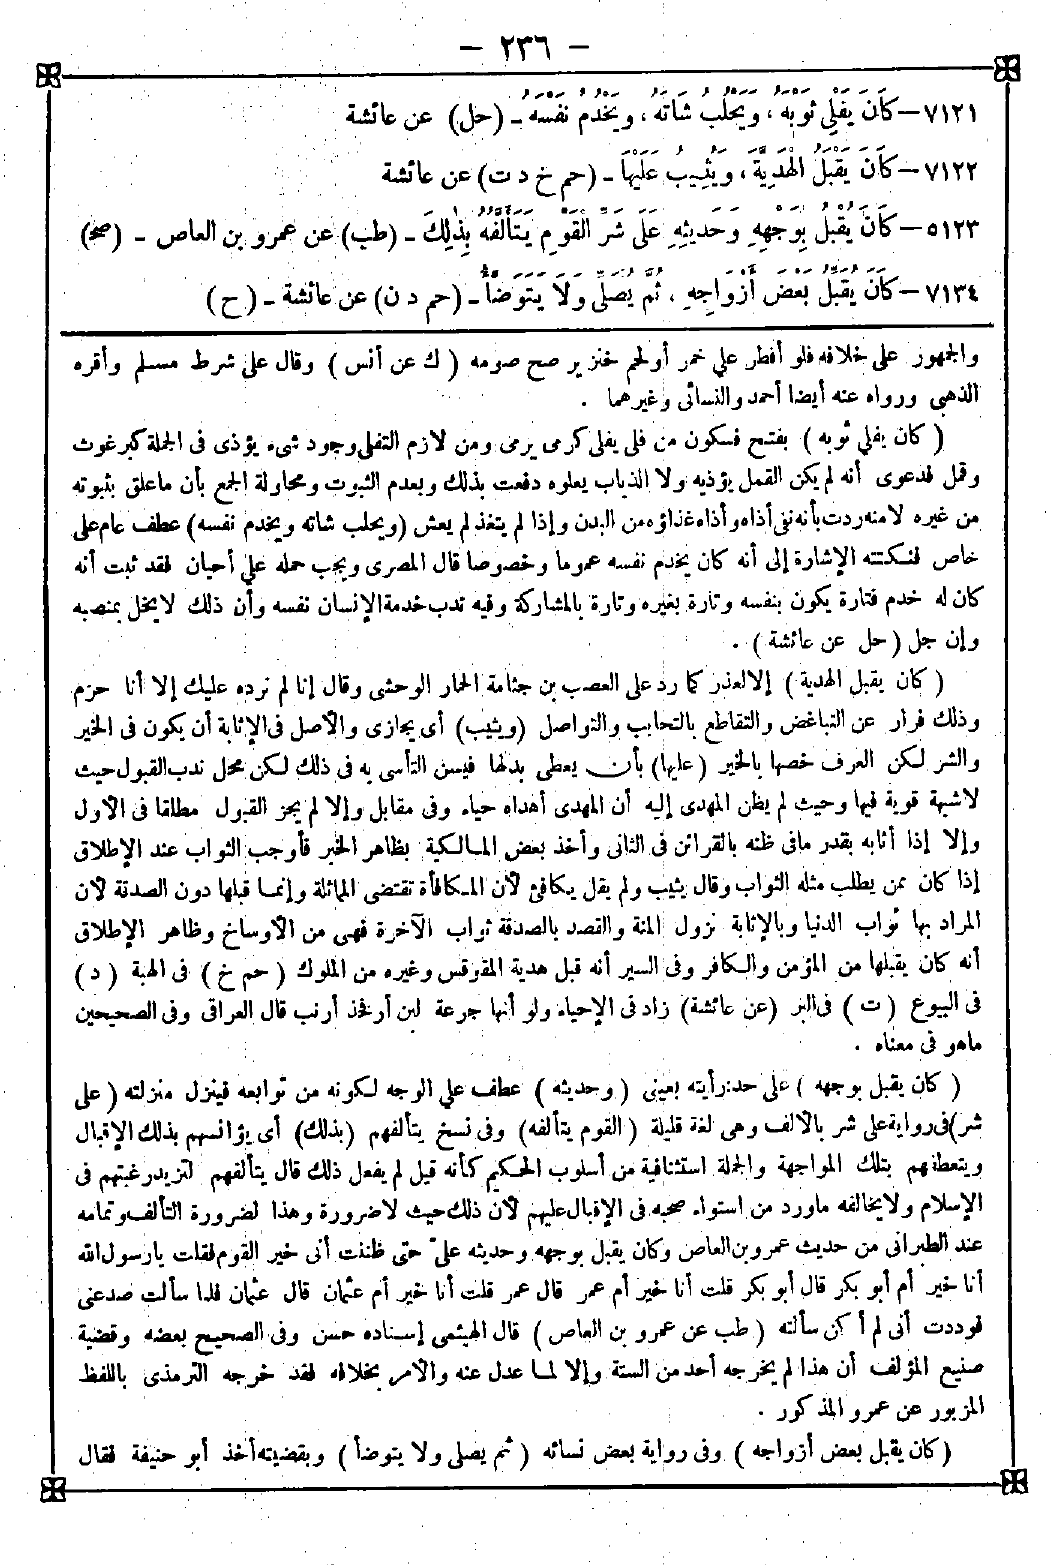 - ٢٣٦ -
٧١٢١ - كَانَ يَفْلِي ثَوْبَهُ ، وَيَحْلُبُ شَاتَهُ ، وَيَخْدُمُ نَفْسَهُ - (حل) عن عائشة
٧١٢٢ - كَانَ يَقْبَلُ الْهَدِيَّةَ ، وَيُثِيبُ عَلَيْهَا - (حم خ د ت) عن عائشة
٥١٢٣ - كَانَ يُقْبِلُ بِوَجْهِهِ وَحَدِيثِهِ عَلَى شَرِّ الْقَوْمِ يَتَأَلَّفُهُ بِذٰلِكَ - (طب) عن عمرو بن العاص - (صح)
٧١٣٤ - كَانَ يُقَبِّلُ بَعْضَ أَزْوَاجِهِ ، ثُمَّ يُصَلِّى وَلَا يَتَوَضَّأُ - (حم د ن) عن عائشة - (ح)
والجمهور على خلافه فلو أفطر على خمر أو لحم خنزير صح صومه ( ك عن أنس ) وقال على شرط مسلم وأقره
الذهبى ورواه عنه أيضا أحمد والنسائى وغيرهما .
( كان يفلي ثوبه ) بفتح فسكون من فلى يفلى كرمى يرمى ومن لازم التفلى وجود شىء يؤذى فى الجملة كبرغوث
وقمل فدعوى أنه لم يكن القمل يؤذيه ولا الذباب يعلوه دفعت بذلك وبعدم الثبوت ومحاولة الجمع بأن ماعلق بثوبه
من غيره لا منه ردت بأنه نفى أذاه وأذاه غذاؤه من البدن وإذا لم يتغذ لم يعش (ويحلب شاته ويخدم نفسه) عطف عام على
خاص فنكتته الإشارة إلى أنه كان يخدم نفسه عموما وخصوصا قال المصرى ويجب حمله على أحيان فقد ثبت أنه
كان له خدم فتارة يكون بنفسه وتارة بغيره وتارة بالمشاركة وفيه ندب خدمة الإنسان نفسه وأن ذلك لا يخل بمنصبه
وإن جل ( حل عن عائشة ) .
( كان يقبل الهدية ) إلا لعذر كما رد على الصعب بن جثامة الحمار الوحشى وقال إنا لم نرده عليك إلا أنا حرم
وذلك فرار عن التباغض والتقاطع بالتحابب والتواصل (ويثيب) أى يجازى والأصل فى الإثابة أن يكون فى الخير
والشر لكن العرف خصها بالخير (عليها) بأن يعطى بدلها فيسن التأسى به فى ذلك لكن محل ندب القبول حيث
لا شبهة قوية فيها وحيث لم يظن المهدى إليه أن المهدى أهداه حياء وفى مقابل وإلا لم يجز القبول مطلقا فى الأول
وإلا إذا أثابه بقدر ما فى ظنه بالقرائن فى الثانى وأخذ بعض المالكية بظاهر الخبر فأوجب الثواب عند الإطلاق
إذا كان ممن يطلب مثله الثواب وقال يثيب ولم يقل يكافئ لأن المكافأة تقتضى المماثلة وإنما قبلها دون الصدقة لأن
المراد بها ثواب الدنيا وبالإثابة تزول المنة والقصد بالصدقة ثواب الآخرة فهى من الأوساخ وظاهر الإطلاق
أنه كان يقبلها من المؤمن والكافر وفى السير أنه قبل هدية المقوقس وغيره من الملوك ( حم خ ) فى الهبة ( د )
فى البيوع ( ت ) فى البر (عن عائشة) زاد فى الإحياء ولو أنها جرعة لبن أو فخذ أرنب قال العراقى وفى الصحيحين
ماهو فى معناه .
( كان يقبل بوجهه ) على حد : رأيته بعينى ( وحديثه ) عطف على الوجه لكونه من توابعه فينزل منزلته ( على
شر) فى رواية على شر بالألف وهى لغة قليلة ( القوم يتألفه ) وفى نسخ يتألفهم (بذلك) أى يؤانسهم بذلك الإقبال
ويتعطفهم بتلك المواجهة والجملة استئنافية من أسلوب الحكيم كأنه قيل لم يفعل ذلك قال يتألفهم لتزيد رغبتهم فى
الإسلام ولا يخالفه ماورد من استواء صحبه فى الإقبال عليهم لأن ذلك حيث لا ضرورة وهذا لضرورة التألف وتمامه
عند الطبرانى من حديث عمرو بن العاص وكان يقبل بوجهه وحديثه علىّ حتى ظننت أنى خير القوم فقلت يا رسول الله
أنا خير أم أبو بكر قال أبو بكر قلت أنا خير أم عمر قال عمر قلت أنا خير أم عثمان قال عثمان فلما سألت صدعنى
فوددت أنى لم أكن سألته ( طب عن عمرو بن العاص ) قال الهيثمى إسناده حسن وفى الصحيح بعضه وقضية
صنيع المؤلف أن هذا لم يخرجه أحد من الستة وإلا لما عدل عنه والأمر بخلافه فقد خرجه الترمذى باللفظ
المزبور عن عمرو المذكور .
( كان يقبل بعض أزواجه ) وفى رواية بعض نسائه ( ثم يصلى ولا يتوضأ ) وبقضيته أخذ أبو حنيفة فقال